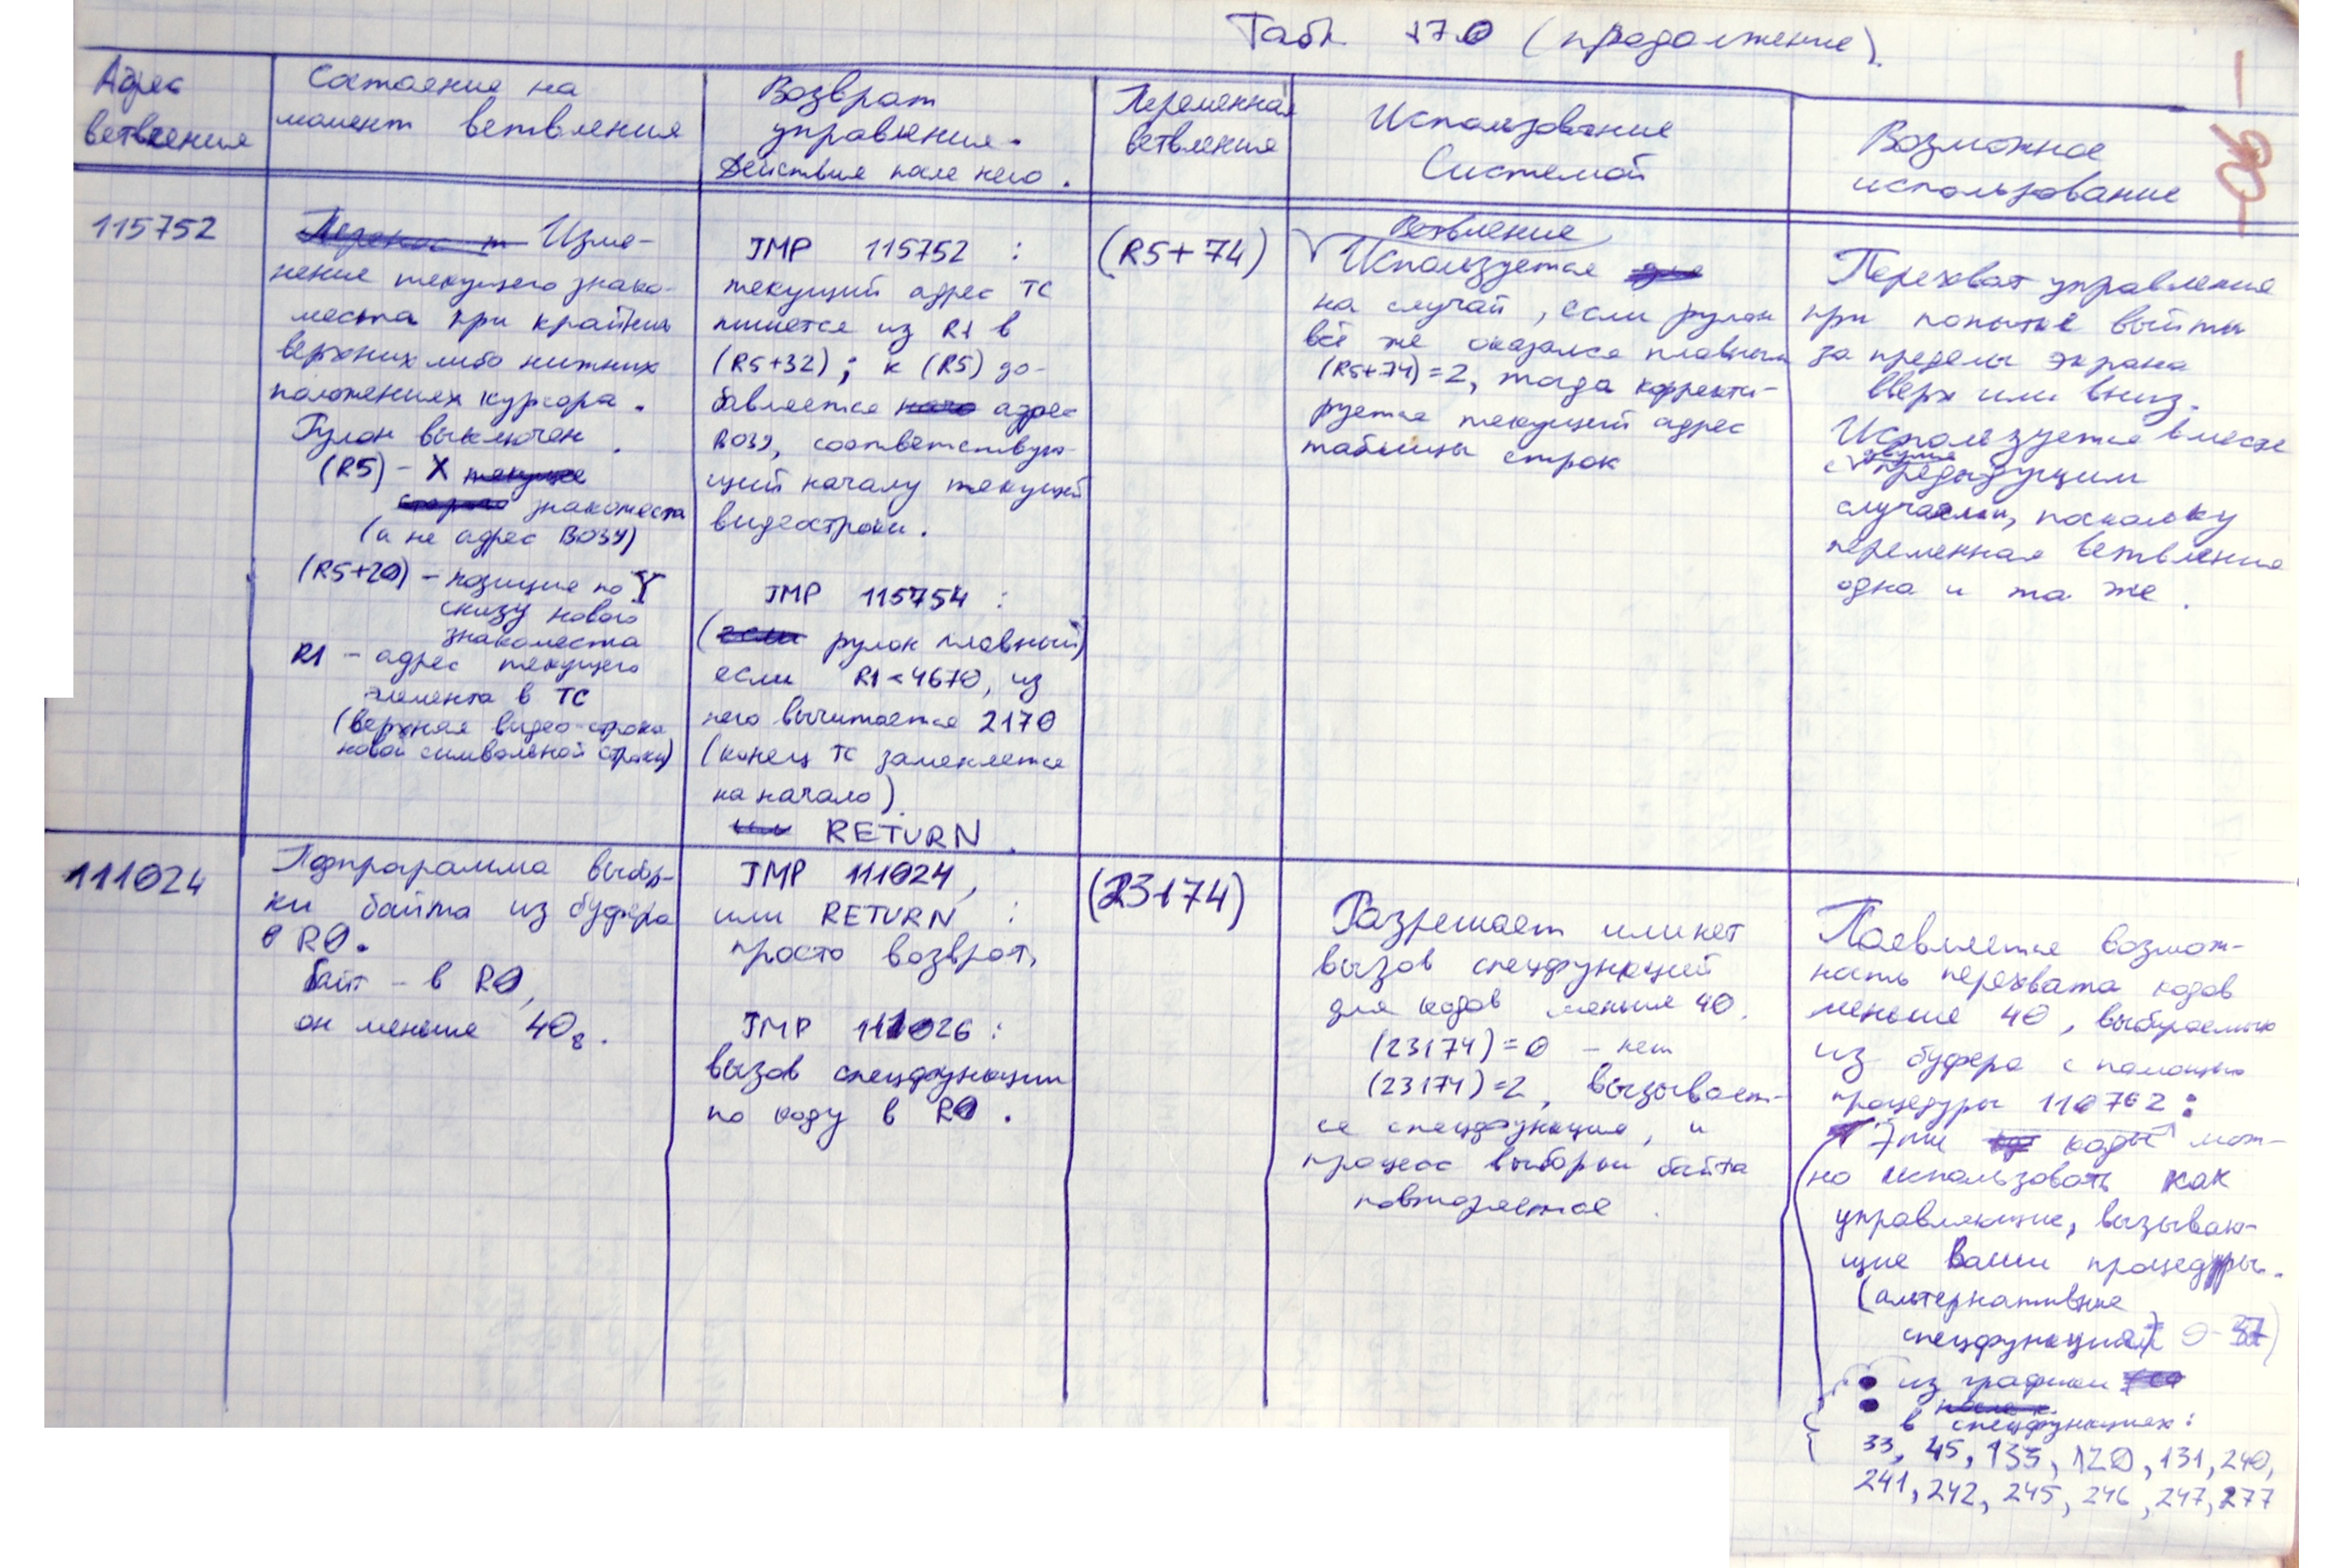 Табл 17.0 (продолжение).
Адрес
ветвления
Состояние на
момент ветвления
Возврат
управления.
Действия после него.
Переменная
ветвления
Использование
Системой
Возможное
использование
115752
Изме-
нение текущего знако-
места при крайних
верхних либо нижних
положениях курсора.
Рулон выключен.
(R5) - X
знакоместа
(а не адрес ВОЗУ)
(R5+20) - позиция по Y
снизу нового
знакоместа
R1 - адрес текущего
элемента в ТС
(верхняя видео-строка
новой символьной строки)
JMP 115752 :
текущий адрес ТС
пишется из R1 в
(R5+32); к (R5) до-
бавляется адрес
ВОЗУ, соответствую-
щий началу текущей
видеостроки.
JMP 115754 :
(рулон плавный)
если R1<4670, из
него вычитается 2170
(конец ТС заменяется
на начало).
RETURN.
(R5+74)
Ветвление
Используется
на случай, если рулон
всё же оказался плавным
(R5+74)=2, тогда корректи-
руется текущий адрес
таблицы строк
Перехват управления
при попытке выйти
за пределы экрана
вверх или вниз.
Используется вместе
с двумя предыдущими
случаями, поскольку
переменная ветвления
одна и та же.
111024
Подпрограмма выбор-
ки байта из буфера
в R0.
байт - в R0,
он меньше 40₈.
JMP 111024,
или RETURN :
просто возврат,
JMP 111026 :
вызов спецфункции
по коду в R0.
(23174)
Разрешает или нет
вызов спецфункций
для кодов меньше 40.
(23174)=0 - нет
(23174)=2, вызывает-
ся спецфункция, и
процесс выборки байта
повторяется.
Появляется возмож-
ность перехвата кодов
меньше 40, выбираемых
из буфера с помощью
процедуры 110762:
Эти коды мож-
но использовать как
управляющие, вызываю-
щие ваши процедуры.
(альтернативные
спецфункции 0-37)
из графики
в спецфункциях:
33, 45, 133, 120, 131, 240,
241, 242, 245, 246, 247, 277